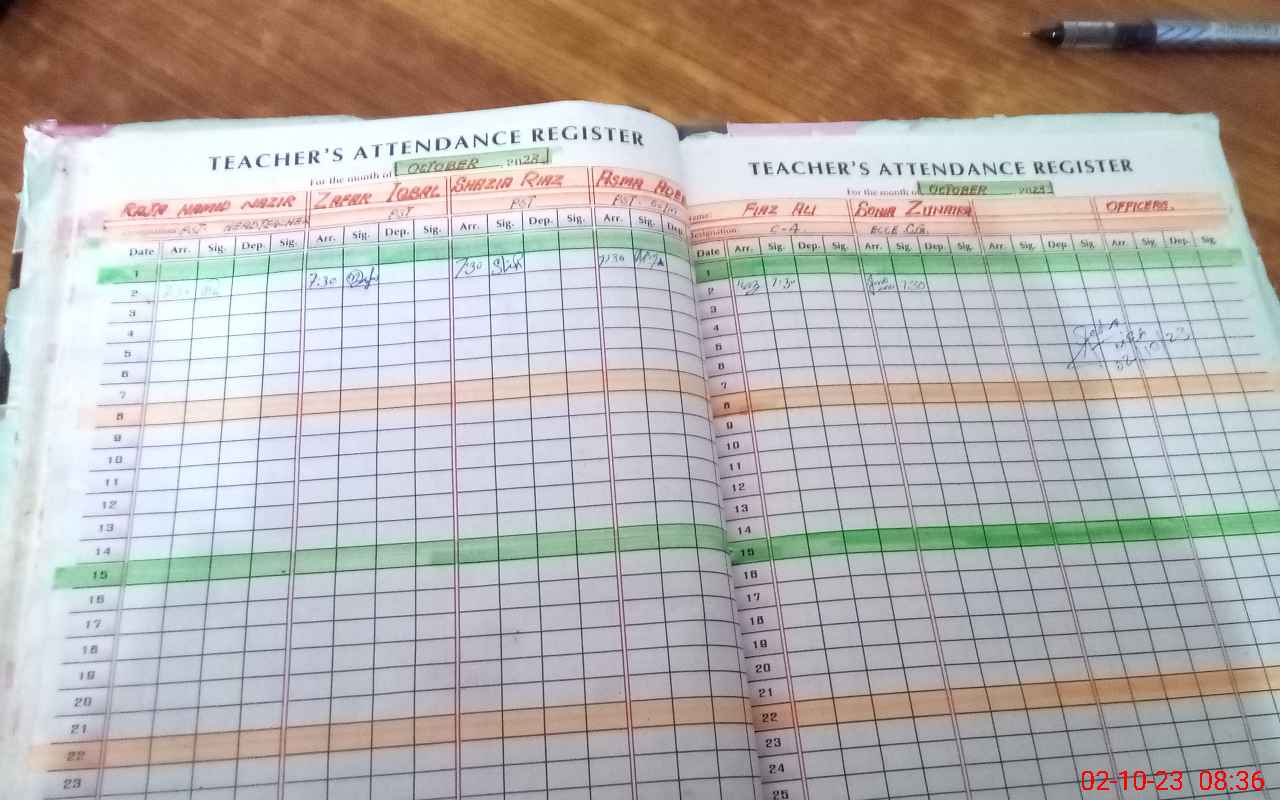 TEACHER'S ATTENDANCE REGISTER
For the month of OCTOBER 2023
RAJA HAMID NAZIR ZAFAR IQBAL SHAZIA RIAZ ASMA
PST HEADTEACHER PST PST PST
Date Arr. Sig. Dep. Sig. Arr. Sig. Dep. Sig. Arr. Sig. Dep. Sig. Arr. Sig. Dep.
1
2 7:30 7:30 7:30 7:30
3
4
5
6
7
8
9
10
11
12
13
14
15
16
17
18
19
20
21
22
23
TEACHER'S ATTENDANCE REGISTER
For the month of OCTOBER 2023
Name FIAZ ALI SONIA ZUNAIRA OFFICERS.
Designation C-4 ECCE C.G.
Date Arr. Sig. Dep. Sig. Arr. Sig. Dep. Sig. Arr. Sig. Dep. Sig. Arr. Sig. Dep. Sig.
1
2 7:30 7:30
3
4
5
6
7
8
9
10
11
12
13
14
15
16
17
18
19
20
21
22
23
24
25
02/10/23
02-10-23 08:36